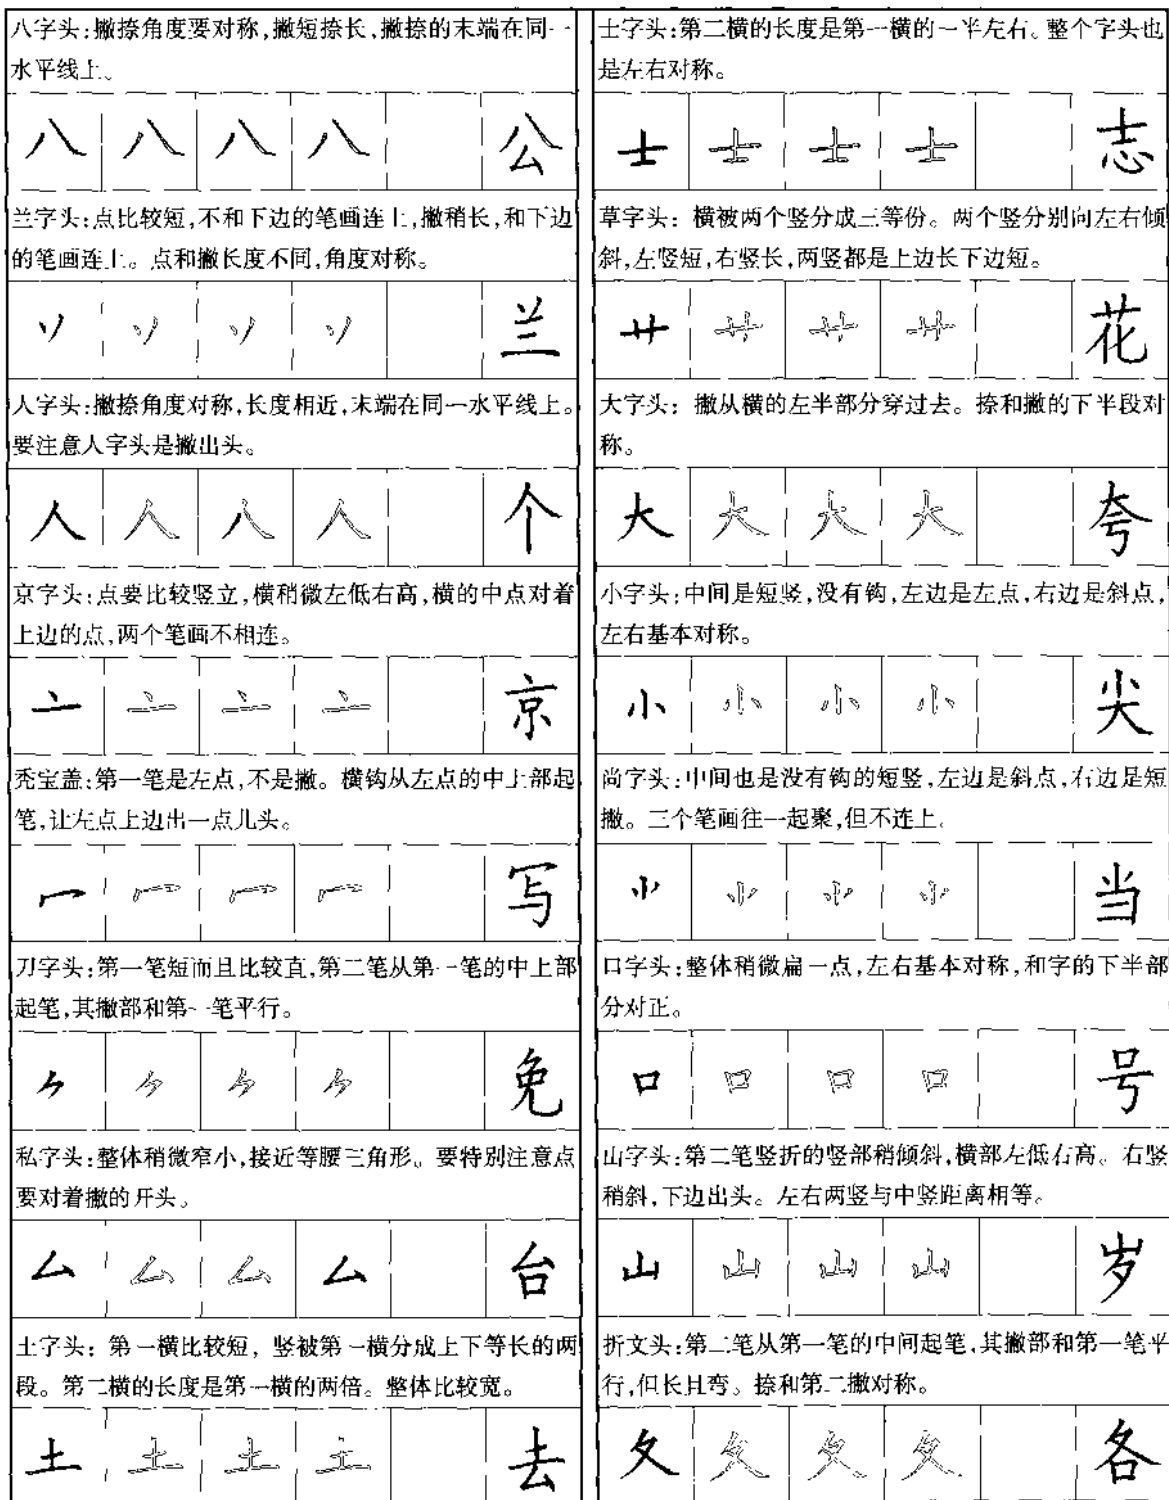 八字头:撇捺角度要对称,撇短捺长,撇捺的末端在同一
水平线上。
八 八 八 八 公
兰字头:点比较短,不和下边的笔画连上,撇稍长,和下边
的笔画连上。点和撇长度不同,角度对称。
丷 丷 丷 丷 兰
人字头:撇捺角度对称,长度相近,末端在同一水平线上。
要注意人字头是撇出头。
人 人 人 人 个
京字头:点要比较竖立,横稍微左低右高,横的中点对着
上边的点,两个笔画不相连。
亠 亠 亠 亠 京
秃宝盖:第一笔是左点,不是撇。横钩从左点的中上部起
笔,让左点上边出一点儿头。
冖 冖 冖 冖 写
刀字头:第一笔短而且比较直,第二笔从第一笔的中上部
起笔,其撇部和第一笔平行。
⺈ ⺈ ⺈ ⺈ 免
私字头:整体稍微窄小,接近等腰三角形。要特别注意点
要对着撇的开头。
厶 厶 厶 厶 台
土字头:第一横比较短,竖被第一横分成上下等长的两
段。第二横的长度是第一横的两倍。整体比较宽。
土 土 土 土 去
士字头:第二横的长度是第一横的一半左右。整个字头也
是左右对称。
士 士 士 士 志
草字头:横被两个竖分成三等份。两个竖分别向左右倾
斜,左竖短,右竖长,两竖都是上边长下边短。
艹 艹 艹 艹 花
大字头:撇从横的左半部分穿过去。捺和撇的下半段对
称。
大 大 大 大 夸
小字头:中间是短竖,没有钩,左边是左点,右边是斜点,
左右基本对称。
小 小 小 小 尖
尚字头:中间也是没有钩的短竖,左边是斜点,右边是短
撇。三个笔画往一起聚,但不连上。
⺌ ⺌ ⺌ ⺌ 当
口字头:整体稍微扁一点,左右基本对称,和字的下半部
分对正。
口 口 口 口 号
山字头:第二笔竖折的竖部稍倾斜,横部左低右高。右竖
稍斜,下边出头。左右两竖与中竖距离相等。
山 山 山 山 岁
折文头:第二笔从第一笔的中间起笔,其撇部和第一笔平
行,但长且弯。捺和第二撇对称。
夂 夂 夂 夂 各